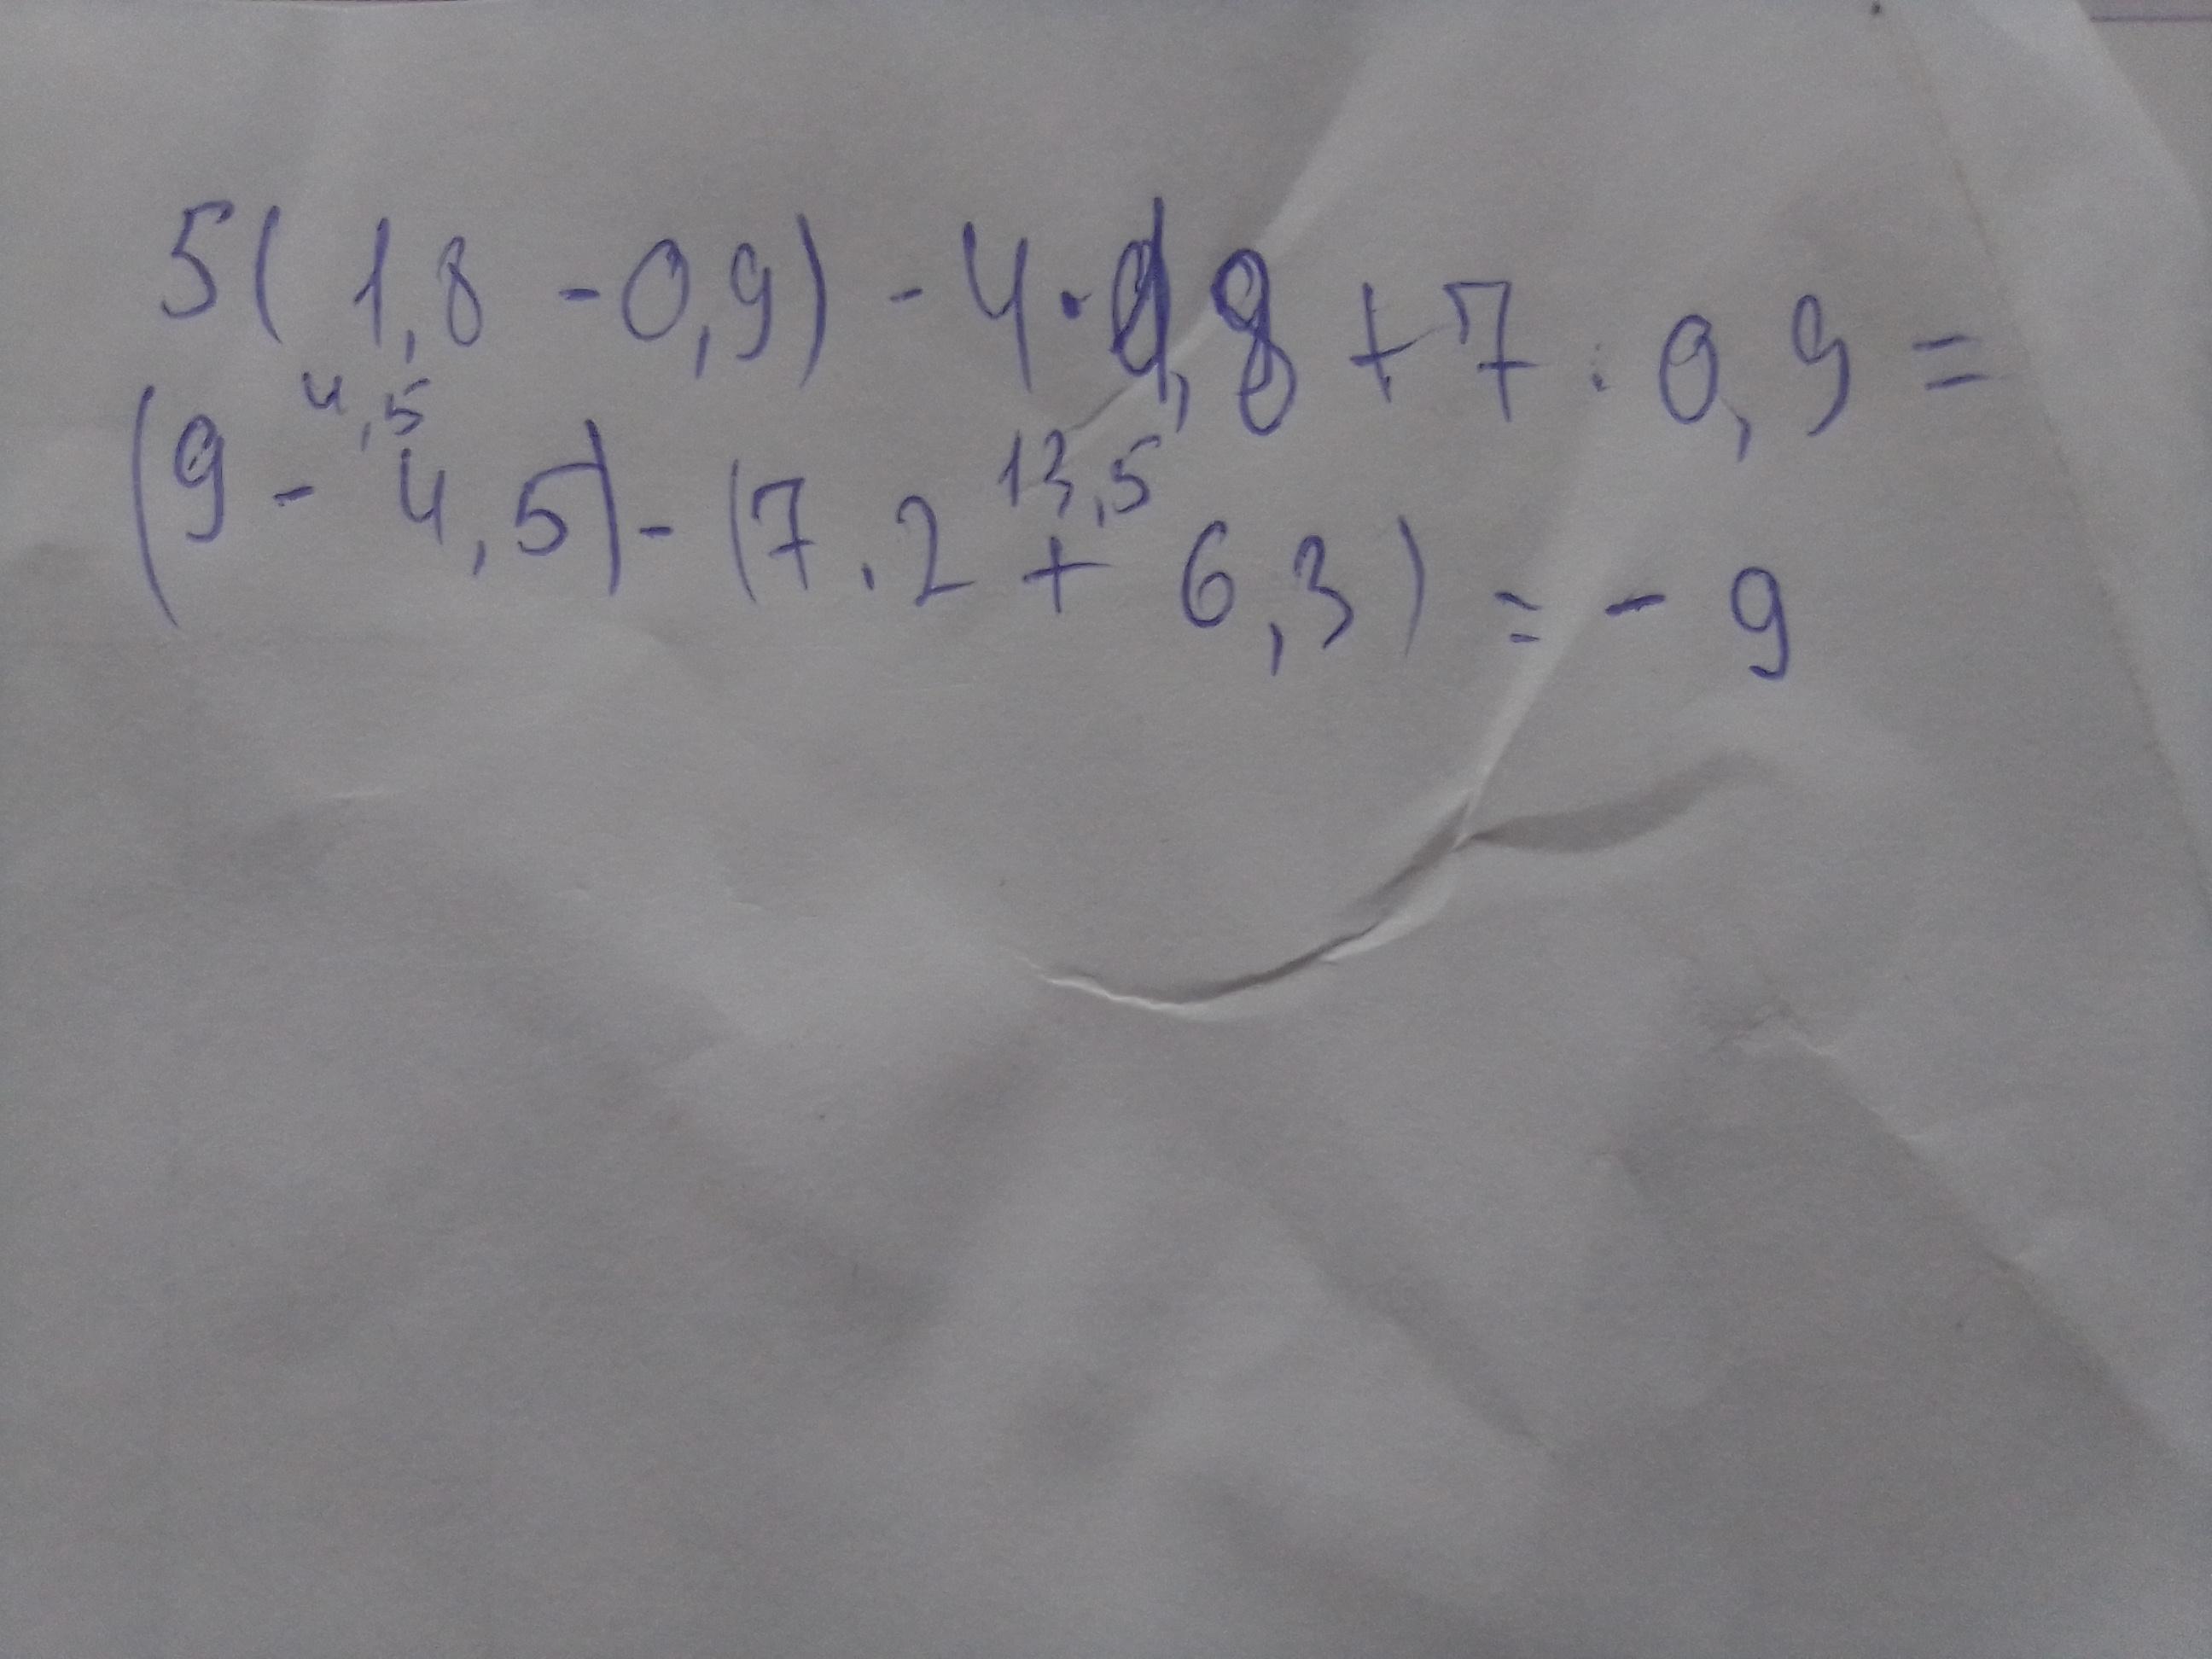 5( 1,8 - 0,9) - 4 · 1,8 + 7 . 0,9 =
4,5 13,5
(9 - 4,5) - (7.2 + 6,3) = - 9